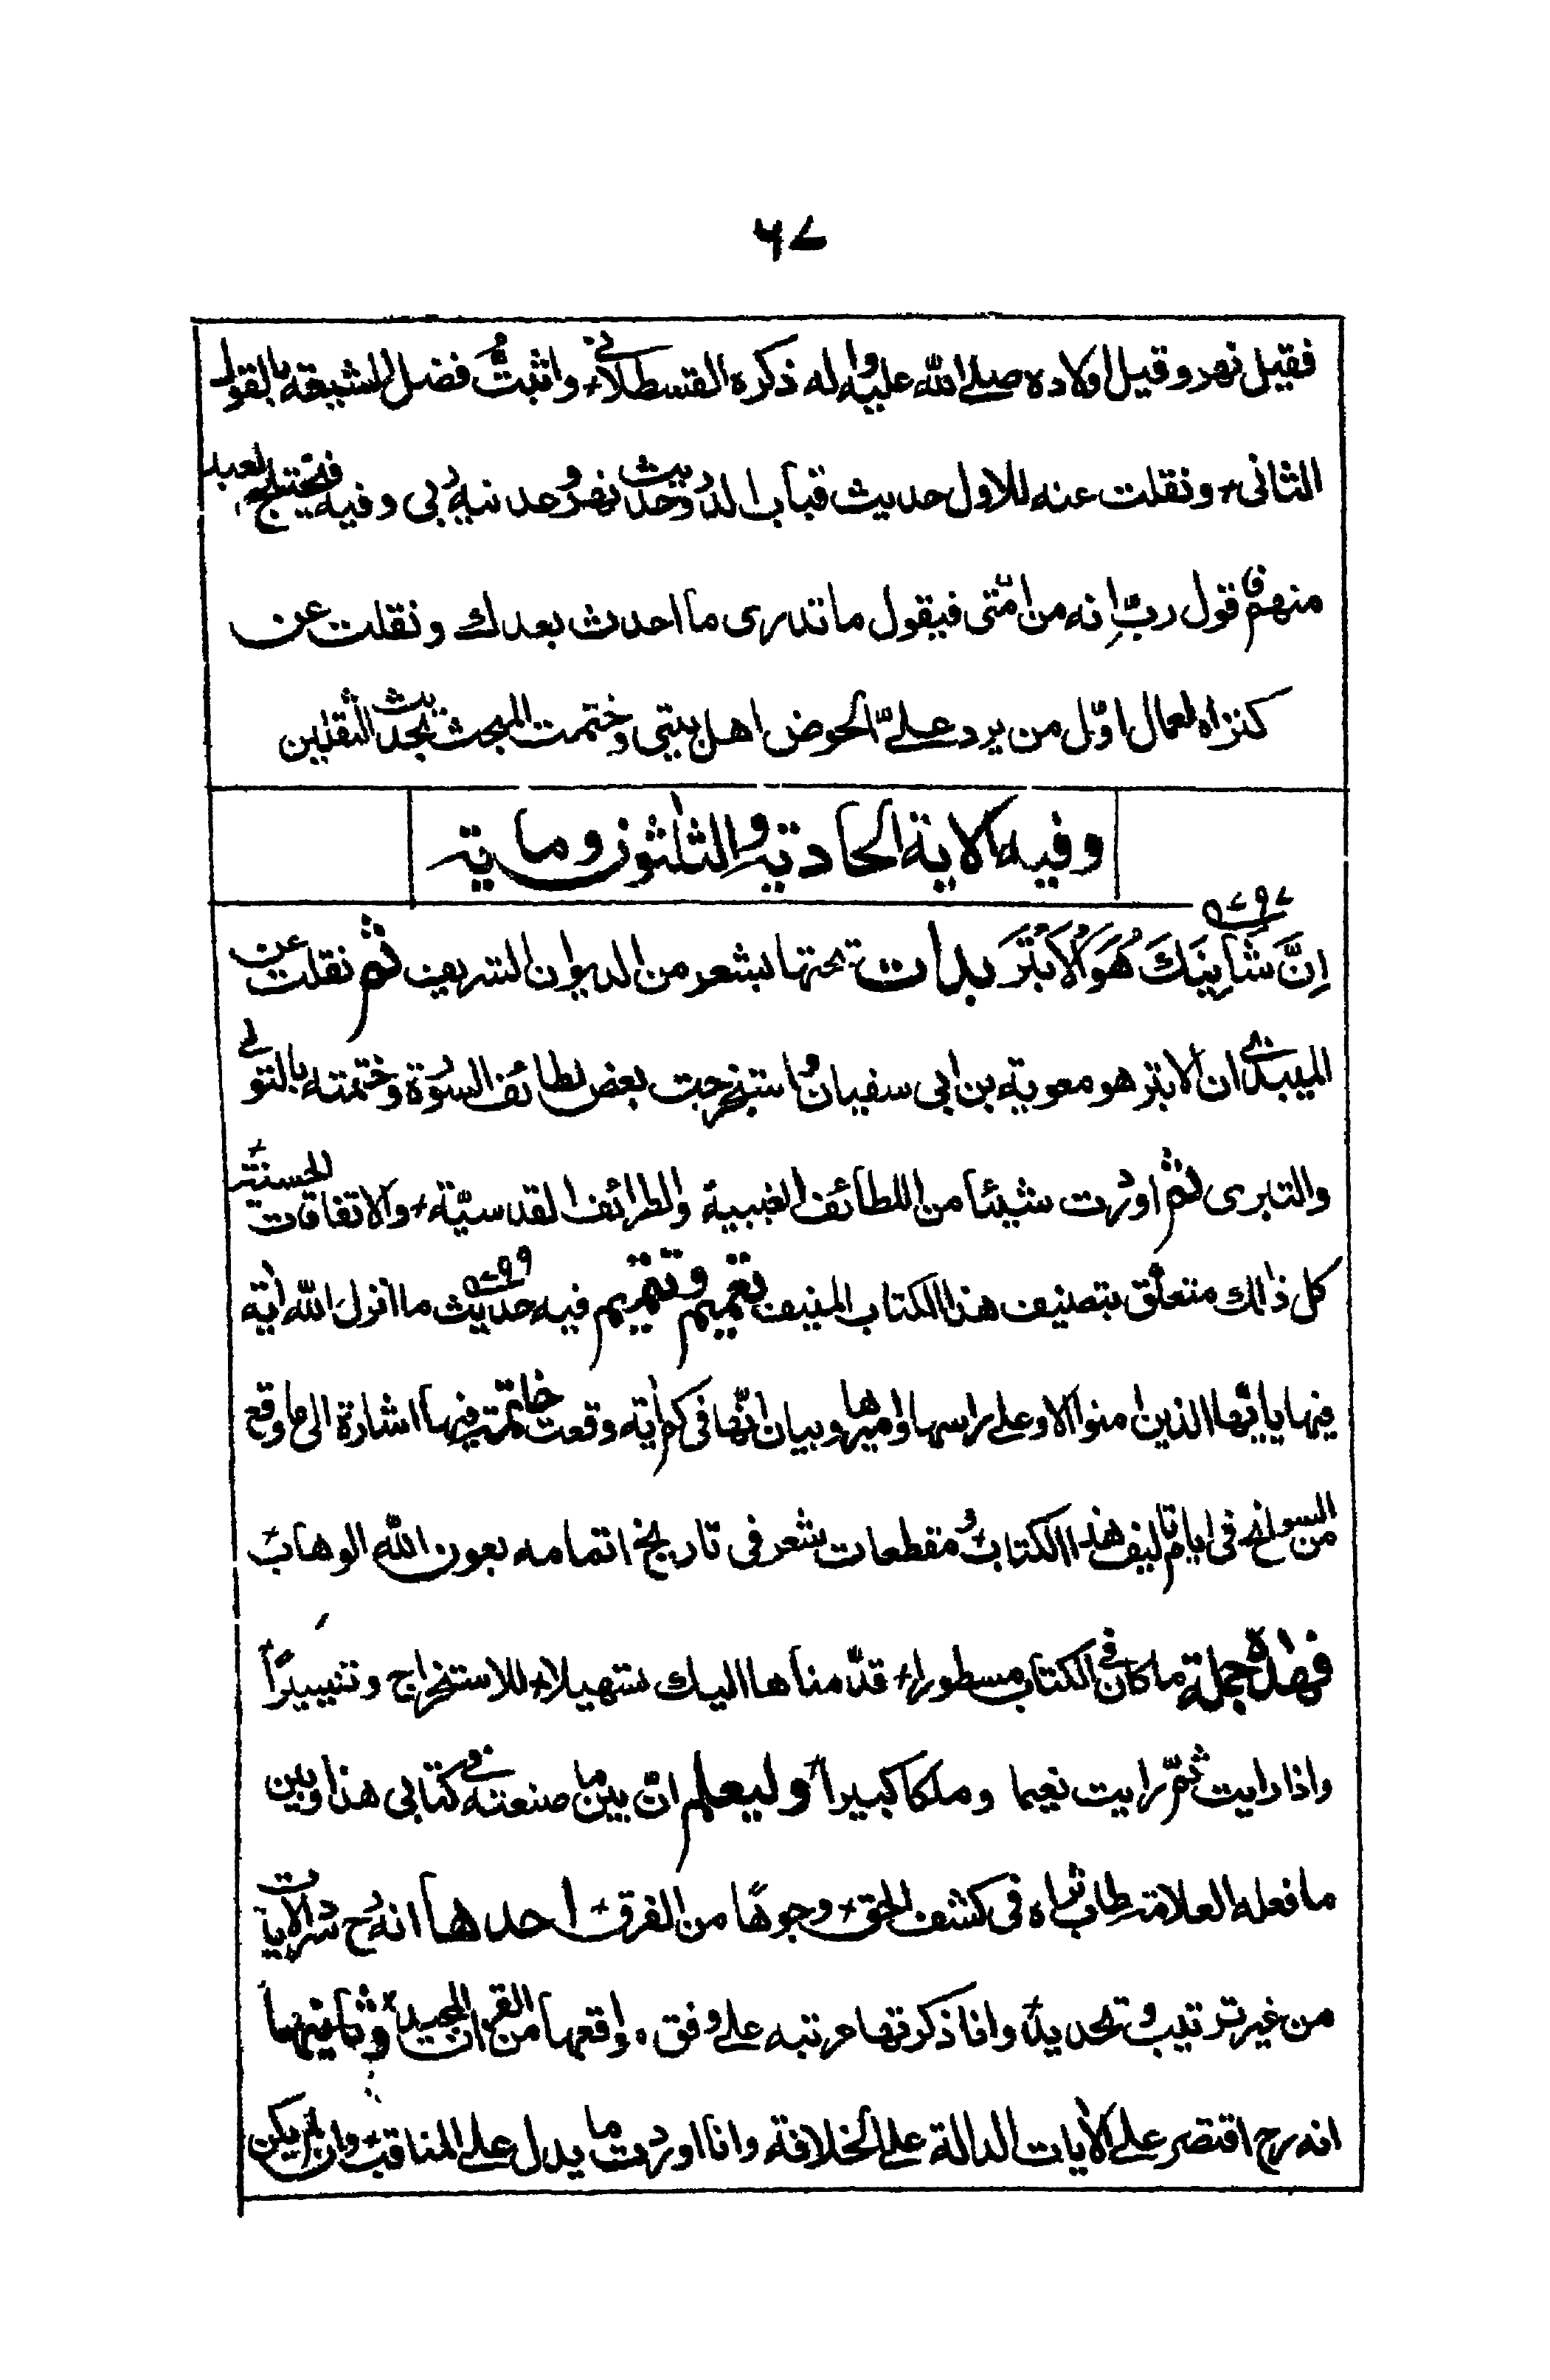 ٦٧
فقيل نهر وقيل اولاده صلے الله عليه واله ذكره القسطلانے واثبتُّ فضل الشيعة بالقول
الثانى ونقلت عنه للاول حديث قباب الدر وحديث نهر وعدنيه ربى وفيه فيختلج العبد
منهم فاقول ربِّ انه من امّتى فيقول ما تدرى ما احدث بعدك ونقلت عن
كنز العمال اوّل من يرد علےّ الحوض اهل بيتى وختمت المبحث بحديث الثقلين
وفيه الاية الحادية والثلثون وماية
اِنَّ شَانِئَكَ هُوَ الْاَبْتَرَ بدات تحتها بشعر من الديوان الشريف ثم نقلت عن
الميبذى ان الابتر هو معوية بن ابى سفيان واستخرجت بعض لطائف السورة وختمته بالتولے
والتبرى ثم اوردت شيئا من اللطائف الغيبية والطرائف القدسيّة والاتفاقات الحسنة
كل ذالك متعلّق بتصنيف هذا الكتاب المنيف تعميم وتتميم فيه حديث ما انزل الله اٰية
فيها يايّها الذين امنوا الا وعلى راسها واميرها وبيان انّها فى كم اٰية وقعت خاتمة فيها اشارة الى ما وقع
من السوانح فى ايام تاليف هذا الكتاب ومقطعات شعر فى تاريخ اتمامه بعون الله الوهاب
فهٰذه جملة ما كان فى الكتاب مسطورا قدّمناها اليك تسهيلا للاستخراج وتيسيرًا
واذا رايت ثمّ رايت نعيما وملكا كبيرا وليعلم انّ بين ما صنعته فے كتابى هذا وبين
ما فعله العلامة طاب ثراه فى كشف الحق وجوهًا من الفرق احدها انه رح نثر الايات
من غير ترتيب وتحديد وانا ذكرتها مرتبه على وفق واقعها من القراٰن المجيد وثانيها
انه رح اقتصر على الاٰيات الدالة على الخلافة وانا اوردت ما يدل على المناقب وان لم يكن